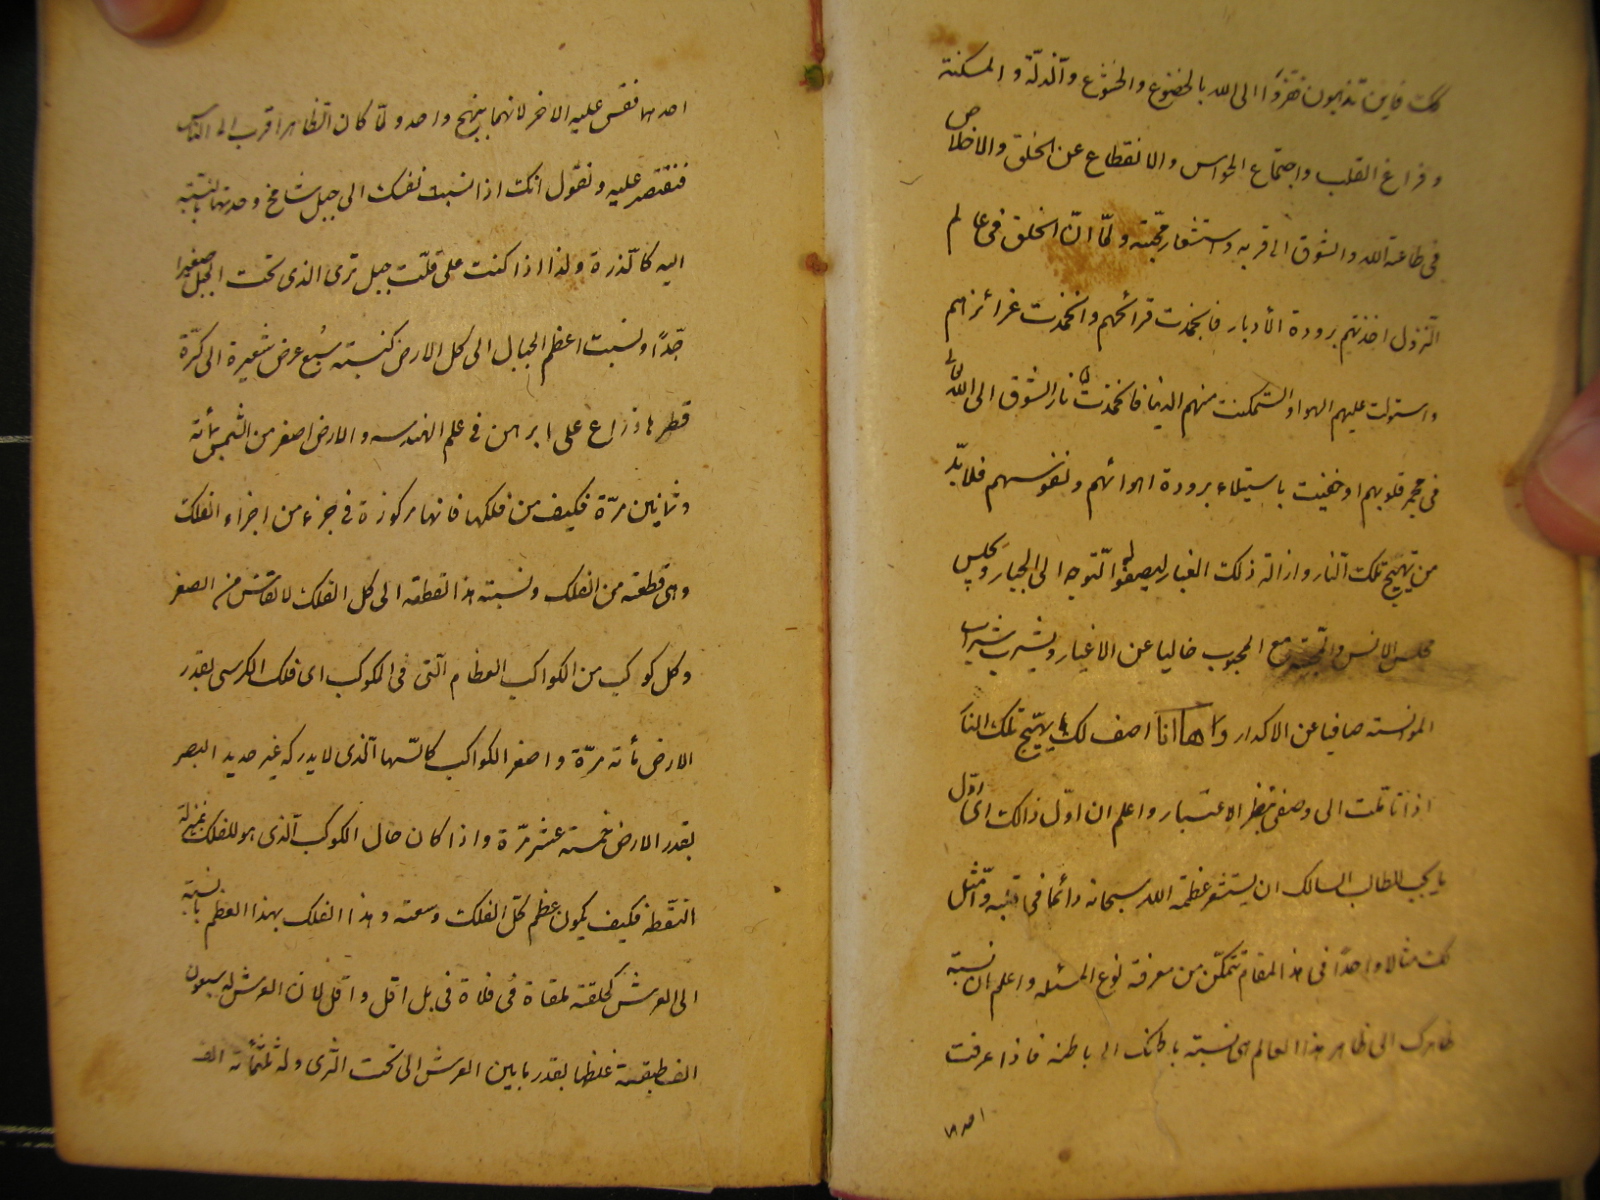 لك فاين تذهبون ففروا الى الله بالخضوع والخشوع والذلّة والمسكنة
و فراغ القلب واجتماع الحواس والانقطاع عن الخلق والاخلاص
فى طاعة الله والشوق الى قربه واستشعار محبّته ولمّا انّ الخلق فى عالم
النزول اخذتهم برودة الأدبار فانجمدت قرائحهم وانخمدت غرائزهم
واستولت عليهم الهواء واستمكنت منهم الدنيا فانخمدت نار الشوق الى الله
فى مجمر قلوبهم او خفيت باستيلاء برودة اهوائهم ونفوسهم فلابدّ
من تهيّج تلك النار وازالة ذلك الغبار ليصفو التوجه الى الجبار ويجلس
مجلس الانس والمحبّة مع المحبوب خاليا عن الاغيار ويشرب شراب
الموانسة صافيا عن الاكدار وها انا اصف لك ما يهيّج تلك النار
اذا تاملت الى وصفى بنظر الاعتبار واعلم ان اوّل ذالك اى اوّل
ما يجب للطالب السالك ان يستشعر عظمة الله سبحانه دائما فى قلبه وامثّل
لك مثالا واحدًا فى هذا المقام تتمكّن من معرفة نوع المسئله واعلم ان نسبة
ظاهرك الى ظاهر هذا العالم هى نسبة باطنك الى باطنه فاذا عرفت
احدهما
احدهما فقس عليه الاخر لانهما بنهج واحد ولمّا كان الظاهر اقرب الى الناس
فنقتصر عليه ونقول انك اذا نسبت نفسك الى جبل شامخ وجدتها بالنسبة
اليه كالذرة ولذا اذا كنت على قلّت جبل ترى الذى تحت الجبل صغيرا
جدًّا ونسبت اعظم الجبال الى كل الارض كنسبة سُبع عرض شعيرة الى كرّة
قطرها ذراع على ما برهن فى علم الهندسه والارض اصغر من الشمس بمأته
وثمانين مرّة فكيف من فلكها فانها مركوزة فى جزء من اجزاء الفلك
وهى قطعة من الفلك ونسبة هذا القطعه الى كل الفلك لا تقاس من الصغر
وكل كوكب من الكواكب العظام الّتى فى الكوكب اى فلك الكرسى بقدر
الارض مأته مرّة واصغر الكواكب كالسّها الّذى لا يدركه غير حديد البصر
بقدر الارض خمسة عشر مرّة واذا كان حال الكوكب الّذى هو للفلك بمنزلة
النقطة فكيف يكون عظم كلّ الفلك وسعته وهذا الفلك بهذا العظم بالنسبة
الى العرش كحلقة ملقاة فى فلاة قى بل اقل واقل لان العرش له سبعون
الف طبقة غلظها بقدر ما بين العرش الى تحت الثرى وله ثلثمأته الف